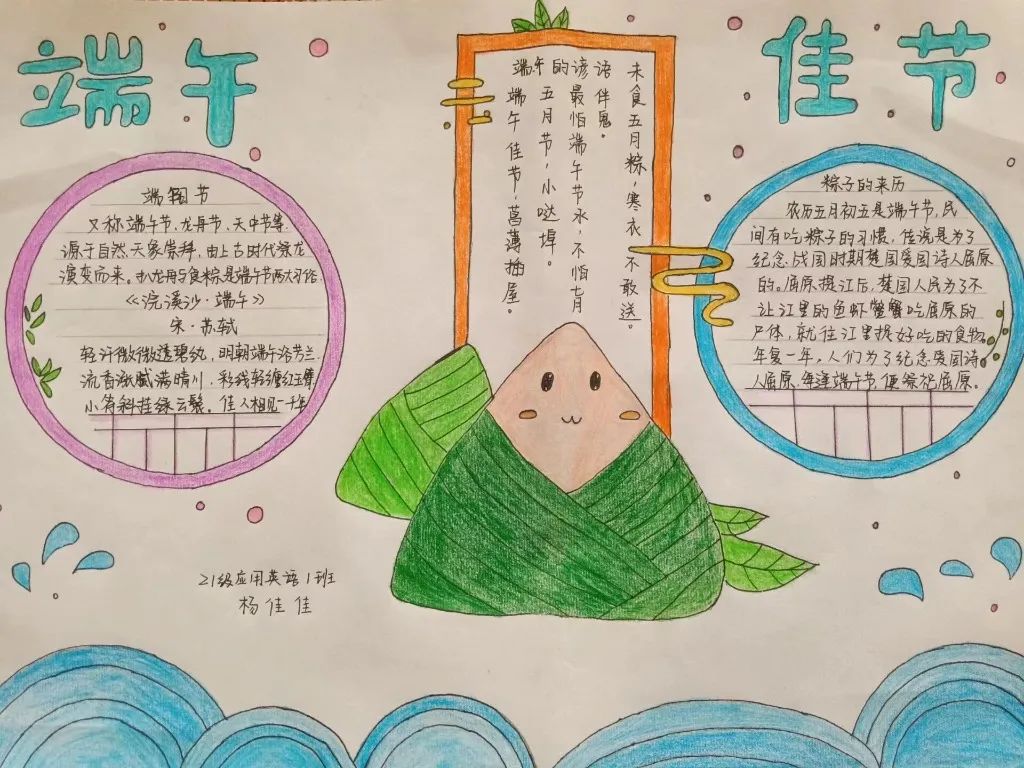 端午
佳节
端午节
又称端午节、龙舟节、天中节等。
源于自然天象崇拜,由上古时代祭龙
演变而来。扒龙舟与食粽是端午节两大习俗
《浣溪沙·端午》
宋·苏轼
轻汗微微透碧纨,明朝端午浴芳兰
流香涨腻满晴川,彩线轻缠红玉臂
小符斜挂绿云鬟。佳人相见一千年
未食五月粽,寒衣不敢送。
端午的谚语
伴鬼。
最怕端午节水,不怕七月
五月节,小哒埠。
端午佳节,菖蒲插屋。
粽子的来历
农历五月初五是端午节,民
间有吃粽子的习惯,传说是为了
纪念战国时期楚国爱国诗人屈原
的。屈原投江后,楚国人民为了不
让江里的鱼虾蟹鳖吃屈原的
尸体,就往江里投好吃的食物
年复一年。人们为了纪念爱国诗
人屈原,每逢端午节便祭祀屈原。
21级应用英语1班
杨佳佳